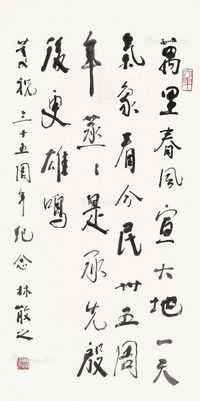 萬里春風宣大地一天
氣象看今民卅五周
年蒸〻是承先啟
後更雄鳴
祝三十五周年紀念 林散之